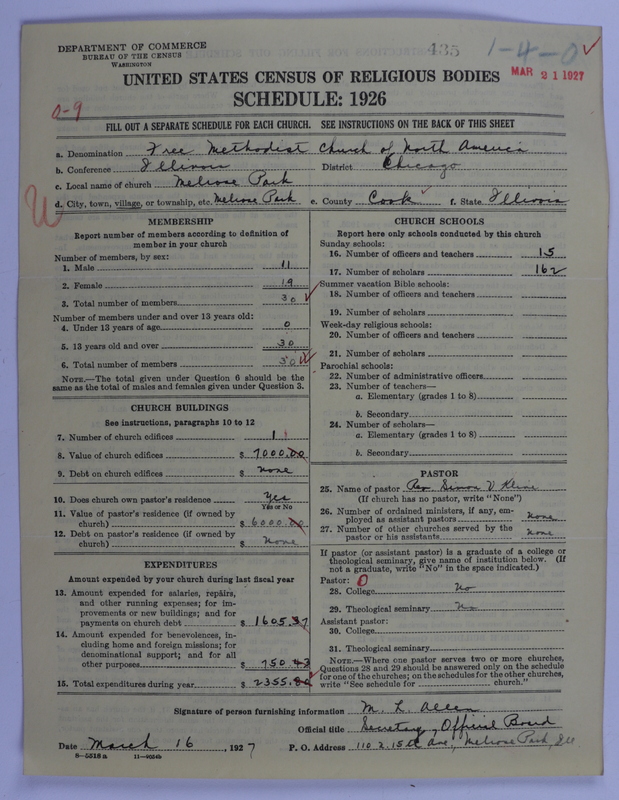 DEPARTMENT OF COMMERCE
BUREAU OF THE CENSUS
WASHINGTON
435
1-4-0
MAR 21 1927
UNITED STATES CENSUS OF RELIGIOUS BODIES
SCHEDULE: 1926
0-9
FILL OUT A SEPARATE SCHEDULE FOR EACH CHURCH. SEE INSTRUCTIONS ON THE BACK OF THIS SHEET
a. Denomination Free Methodist Church of North America
b. Conference Illinois District Chicago
c. Local name of church Melrose Park
d. City, town, village, or township, etc. Melrose Park e. County Cook f. State Illinois
MEMBERSHIP
Report number of members according to definition of
member in your church
Number of members, by sex:
1. Male 11
2. Female 19
3. Total number of members 30
Number of members under and over 13 years old:
4. Under 13 years of age 0
5. 13 years old and over 30
6. Total number of members 30
NOTE.—The total given under Question 6 should be the
same as the total of males and females given under Question 3.
CHURCH BUILDINGS
See instructions, paragraphs 10 to 12
7. Number of church edifices 1
8. Value of church edifices $ 7000.00
9. Debt on church edifices $ none
10. Does church own pastor's residence Yes
Yes or No
11. Value of pastor's residence (if owned by
church) $ 6000.00
12. Debt on pastor's residence (if owned by
church) $ None
EXPENDITURES
Amount expended by your church during last fiscal year
13. Amount expended for salaries, repairs,
and other running expenses; for im-
provements or new buildings; and for
payments on church debt $ 1605.37
14. Amount expended for benevolences, in-
cluding home and foreign missions; for
denominational support; and for all
other purposes $ 750.43
15. Total expenditures during year $ 2355.80
CHURCH SCHOOLS
Report here only schools conducted by this church
Sunday schools:
16. Number of officers and teachers 15
17. Number of scholars 162
Summer vacation Bible schools:
18. Number of officers and teachers
19. Number of scholars
Week-day religious schools:
20. Number of officers and teachers
21. Number of scholars
Parochial schools:
22. Number of administrative officers
23. Number of teachers—
a. Elementary (grades 1 to 8)
b. Secondary
24. Number of scholars—
a. Elementary (grades 1 to 8)
b. Secondary
PASTOR
25. Name of pastor Rev. Simon V. Kline
(If church has no pastor, write "None")
26. Number of ordained ministers, if any, em-
ployed as assistant pastors none
27. Number of other churches served by the
pastor or his assistants none
If pastor (or assistant pastor) is a graduate of a college or
theological seminary, give name of institution below. (If
not a graduate, write "No" in the space indicated.)
Pastor: 0
28. College No
29. Theological seminary No
Assistant pastor:
30. College
31. Theological seminary
NOTE.—Where one pastor serves two or more churches,
Questions 28 and 29 should be answered only on the schedule
for one of the churches; on the schedules for the other churches,
write "See schedule for church."
Signature of person furnishing information M. L. Allen
Official title Secretary, Official Board
Date March 16, 1927 P. O. Address 110 2. 15th Ave., Melrose Park, Ill
8-5518a 11-9024b